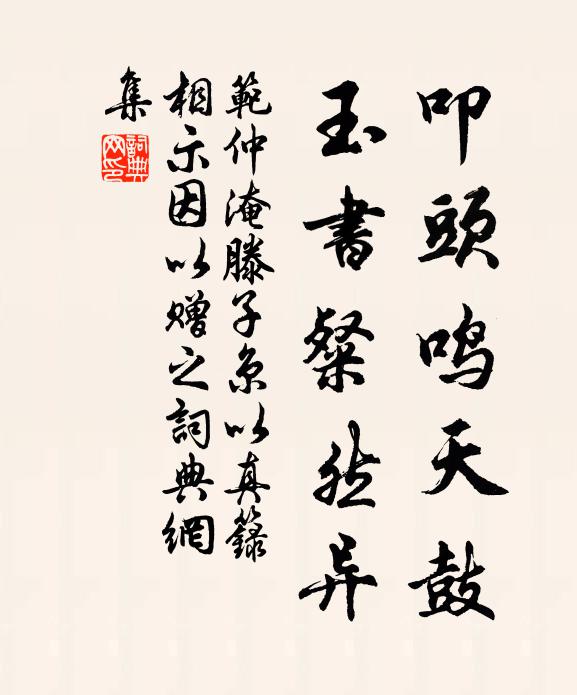 叩頭鳴天鼓
玉書粲然异
範仲淹滕子京以真籙
相示因以贈之詞典網
集
詞典
网印